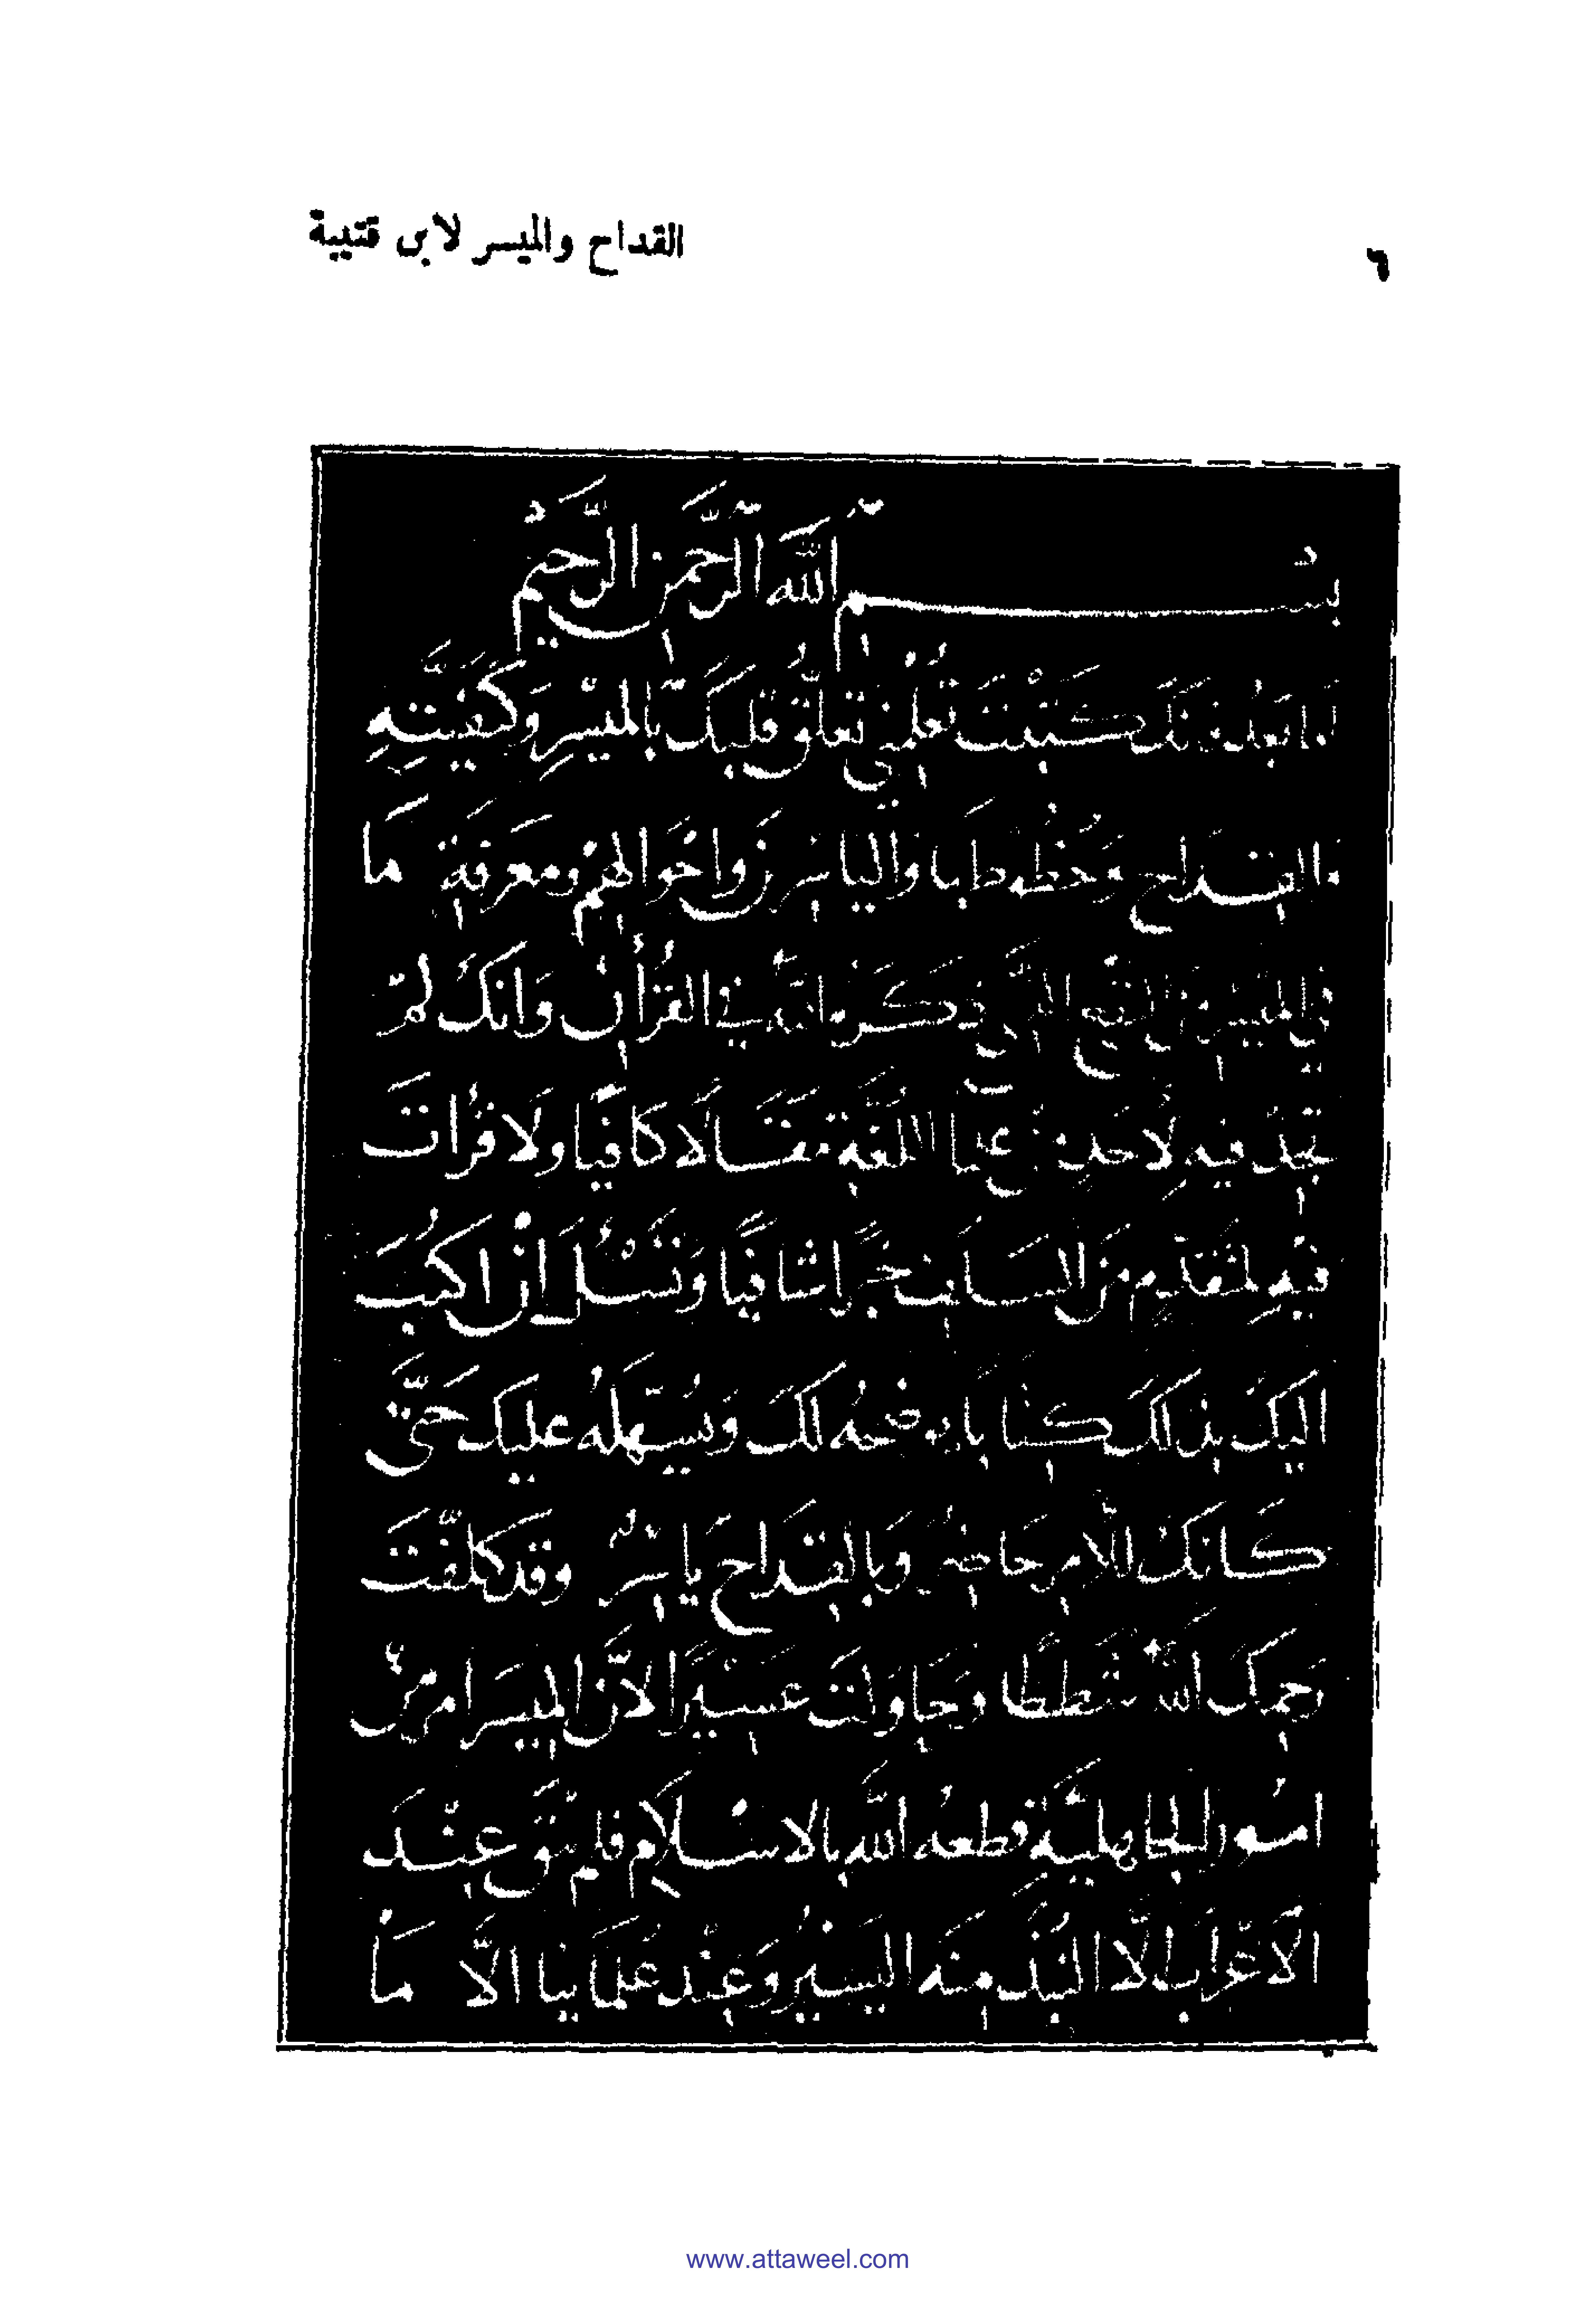 ٦
القداح والميسر لابن قتيبة
بسم الله الرحمن الرحيم
اما بعد فانك كتبت تعلمني تعلق قلبك بالميسر وكيفيته
والقداح وحظوظها والياسرين واحوالهم ومعرفة ما
في الميسر من النفع الذي ذكره الله في القرآن وانك لم
تجد فيه لاحد من علما اللغة مقالا كافيا ولا قرات
فيه لمتقدم من السلف خبرا شافيا وتسأل ان اكتب
اليك بذلك كتابا يوضحه لك ويسهله عليك حتى
كانك للامر حاضر وبالقداح ياسر وقد كلفت
رحمك الله شططا وحاولت عسيرا لان الميسر امر من
امور الجاهلية قطعه الله بالاسلام فلم يبق عند
الاعراب الا النبذ منه اليسير وعند علمائنا الا ما
www.attaweel.com